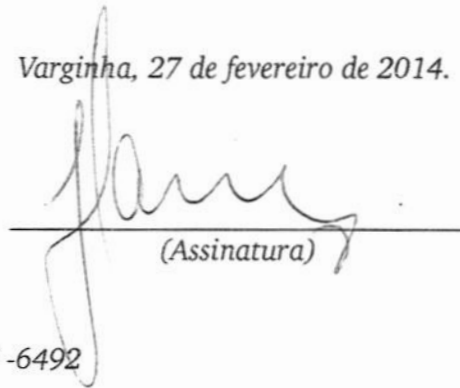 Varginha, 27 de fevereiro de 2014.
(Assinatura)
-6492